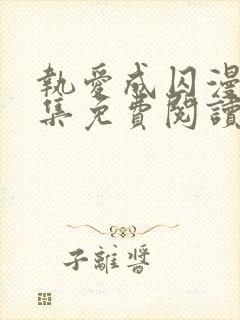 執愛成囚漫
集免費閱讀
子離醬